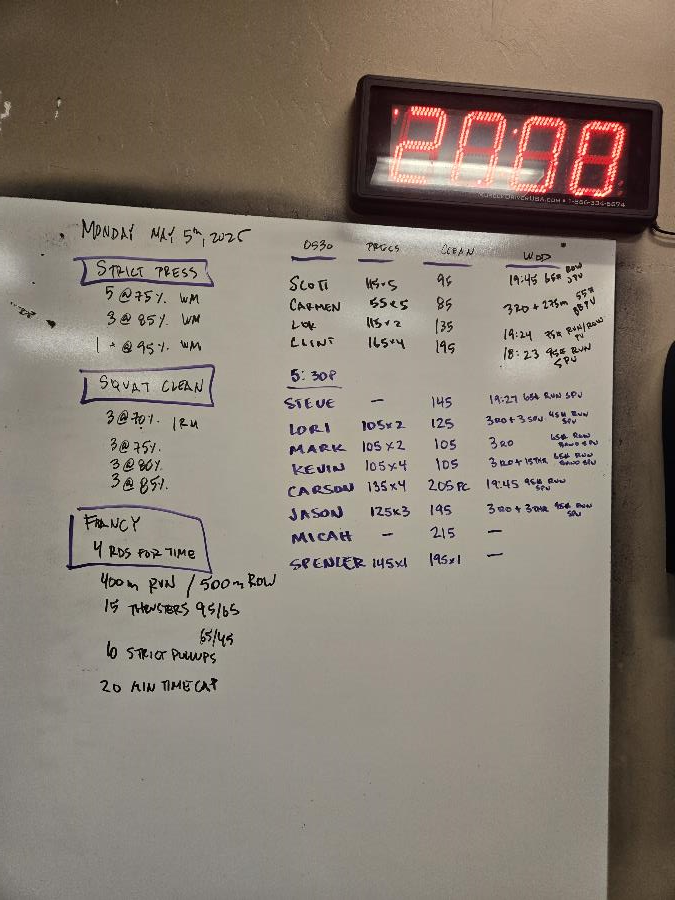 20:00
MONDAY MAY 5th, 2025
STRICT PRESS
5 @ 75% WM
3 @ 85% WM
1+ @ 95% WM
SQUAT CLEAN
3 @ 70% 1RM
3 @ 75%
3 @ 80%
3 @ 85%
FRANCY
4 RDS FOR TIME
400m RUN / 500m ROW
15 THRUSTERS 95/65
65/45
10 STRICT PULLUPS
20 MIN TIME CAP
0530 PRESS CLEAN WOD
SCOTT 115x5 95 19:45 65# ROW
CARMEN 55x5 85 3RD + 275m 55#
115x2 135 19:24 75# RUN/ROW
CLINT 165x4 195 18:23 95# RUN SPU
5:30P
STEVE - 145 19:27 65# RUN SPU
LORI 105x2 125 3RD+3SPU 45# RUN SPU
MARK 105x2 105 3RD 65# RUN BAND SPU
KEVIN 105x4 105 3RD+15THR 65# RUN BAND SPU
CARSON 135x4 205PC 19:45 95# RUN SPU
JASON 125x3 195 3RD+3THR 95# RUN SPU
MICAH - 215 -
SPENCER 145x1 195x1 -